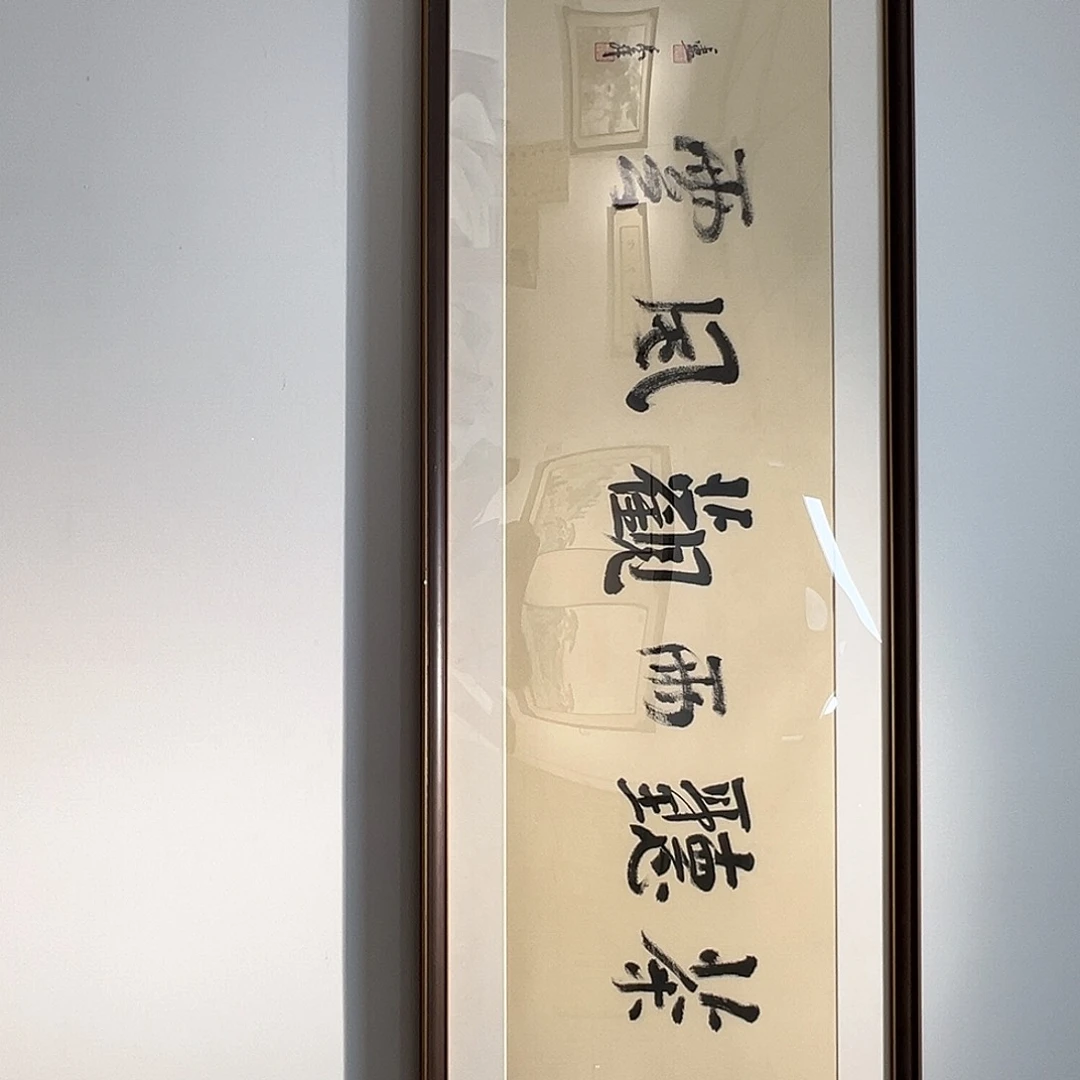 茶聽雨觀風雲